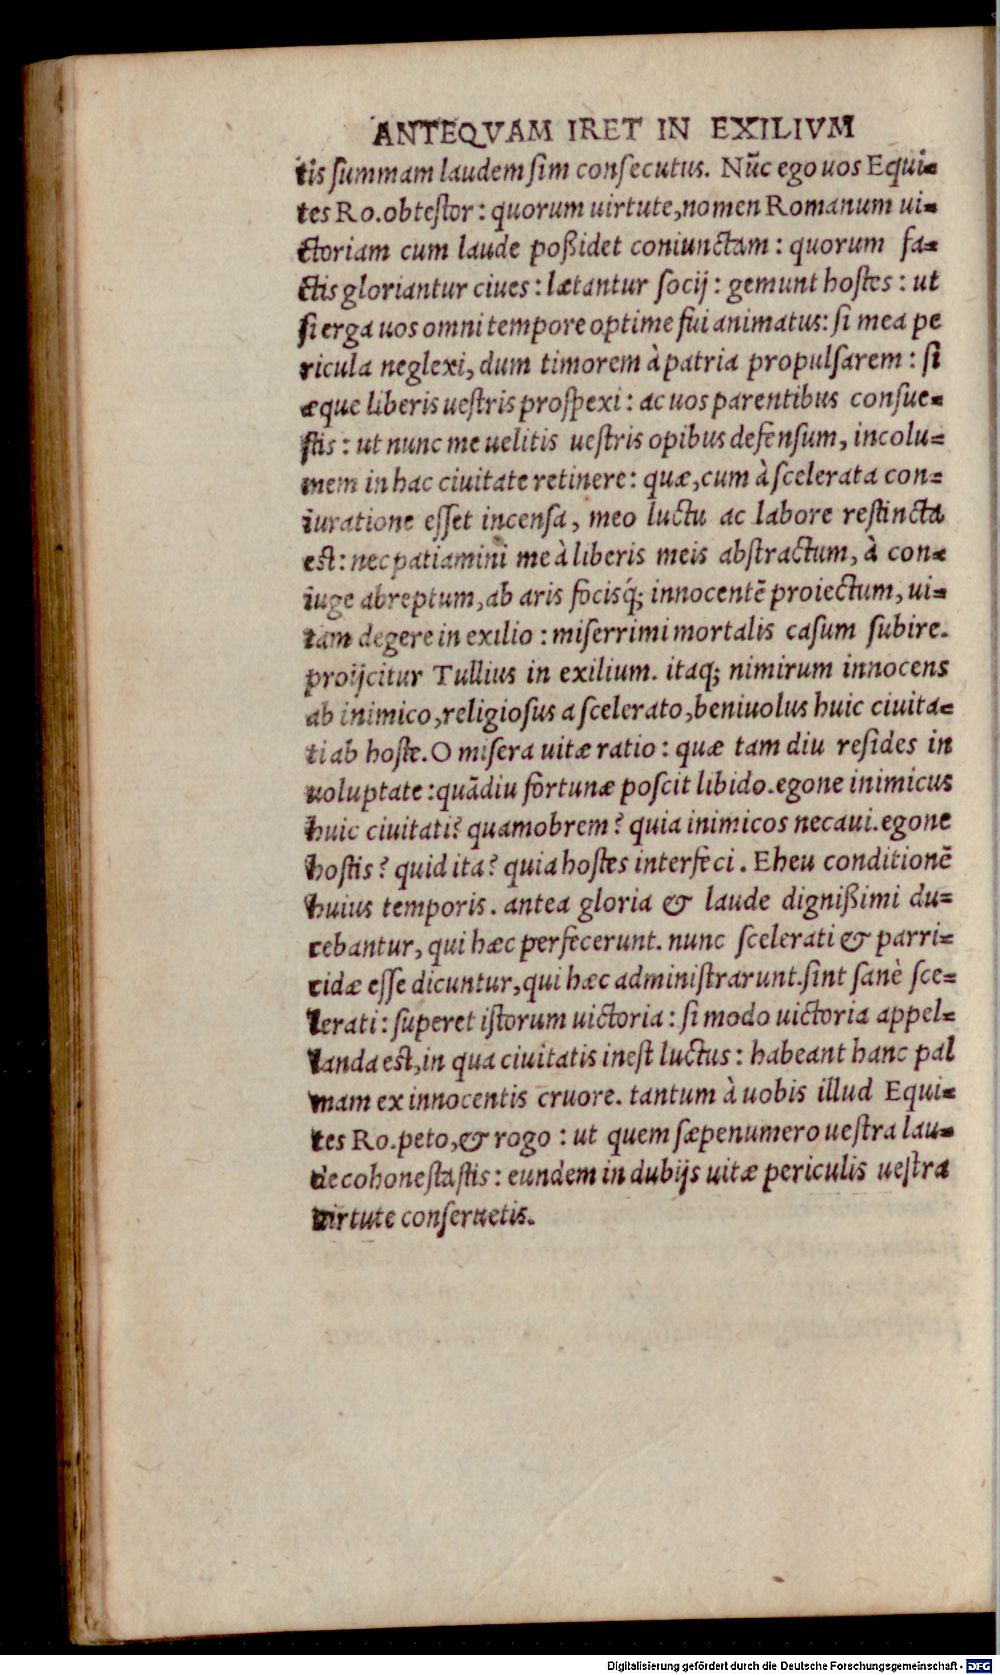 ANTEQVAM IRET IN EXILIVM
tis ſummam laudem ſim conſecutus. Nũc ego uos Equi-
tes Ro. obteſtor: quorum uirtute, nomen Romanum ui-
ctoriam cum laude poßidet coniunctam: quorum fa-
ctis gloriantur ciues: lætantur ſocij: gemunt hoſtes: ut
ſi erga uos omni tempore optime fui animatus: ſi mea pe
ricula neglexi, dum timorem à patria propulſarem: ſi
æque liberis ueſtris proſpexi: ac uos parentibus conſue-
ſtis: ut nunc me uelitis ueſtris opibus defenſum, incolu-
mem in hac ciuitate retinere: quæ, cum à ſcelerata con-
iuratione eſſet incenſa, meo luctu ac labore reſtincta
est: nec patiamini me à liberis meis abſtractum, à con-
iuge abreptum, ab aris focisq́; innocentẽ proiectum, ui-
tam degere in exilio: miſerrimi mortalis caſum ſubire.
proijcitur Tullius in exilium. itaq; nimirum innocens
ab inimico, religioſus a ſcelerato, beniuolus huic ciuita-
ti ab hoſte. O miſera uitæ ratio: quæ tam diu reſides in
uoluptate: quãdiu fortunæ poſcit libido. egone inimicus
huic ciuitati? quamobrem? quia inimicos necaui. egone
hoſtis? quid ita? quia hoſtes interfeci. Eheu conditionẽ
huius temporis. antea gloria & laude digniſſimi du-
cebantur, qui hæc perfecerunt. nunc ſcelerati & parri-
cidæ eſſe dicuntur, qui hæc adminiſtrarunt. ſint ſanè ſce-
lerati: ſuperet iſtorum uictoria: ſi modo uictoria appel-
landa est, in qua ciuitatis ineſt luctus: habeant hanc pal
mam ex innocentis cruore. tantum à uobis illud Equi-
tes Ro. peto, & rogo: ut quem ſæpenumero ueſtra lau-
de cohoneſtaſtis: eundem in dubijs uitæ periculis ueſtra
uirtute conſeruetis.
Digitalisierung gefördert durch die Deutsche Forschungsgemeinschaft - DFG